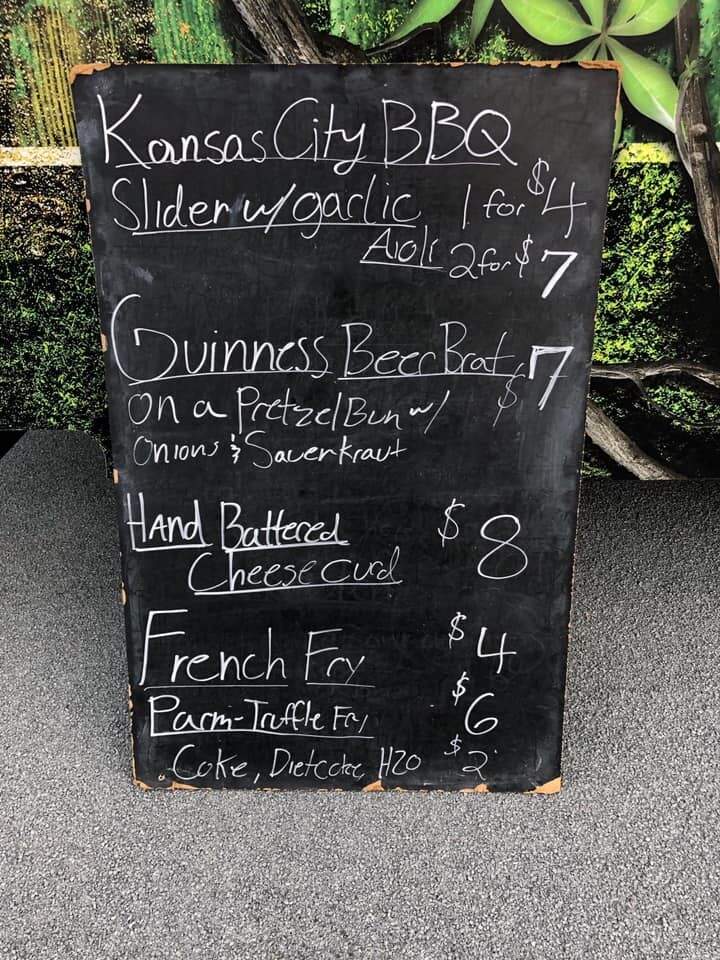 Kansas City BBQ
Slider w/ garlic 1 for $4
Aioli 2 for $7
Guinness Beer Brat $7
On a Pretzel Bun w/
Onions & Sauerkraut
HAnd Battered $8
Cheese Curd
French Fry $4
Parm-Truffle Fry $6
Coke, Diet Coke, H20 $2